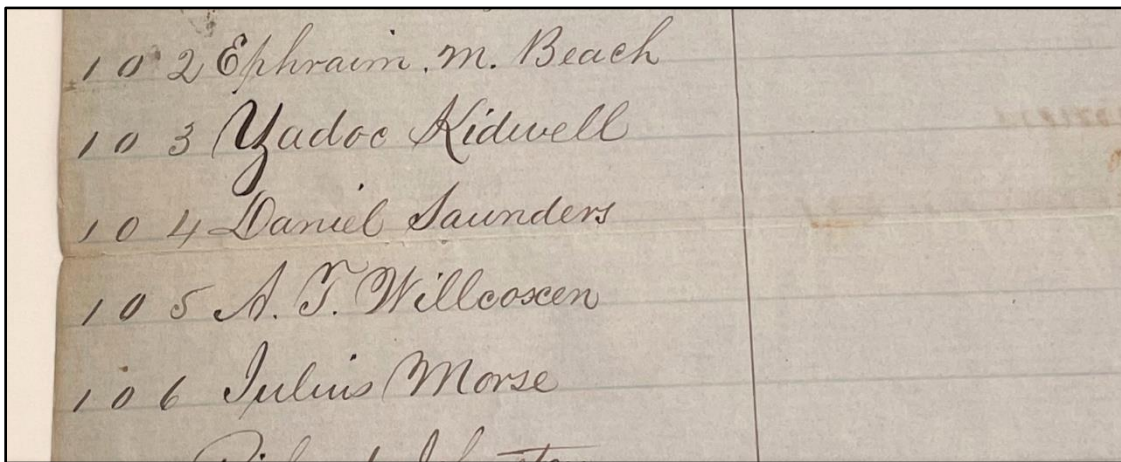 102 Ephraim. M. Beach
103 Zadoc Kidwell
104 Daniel Saunders
105 A. T. Willcoxen
106 Julius Morse